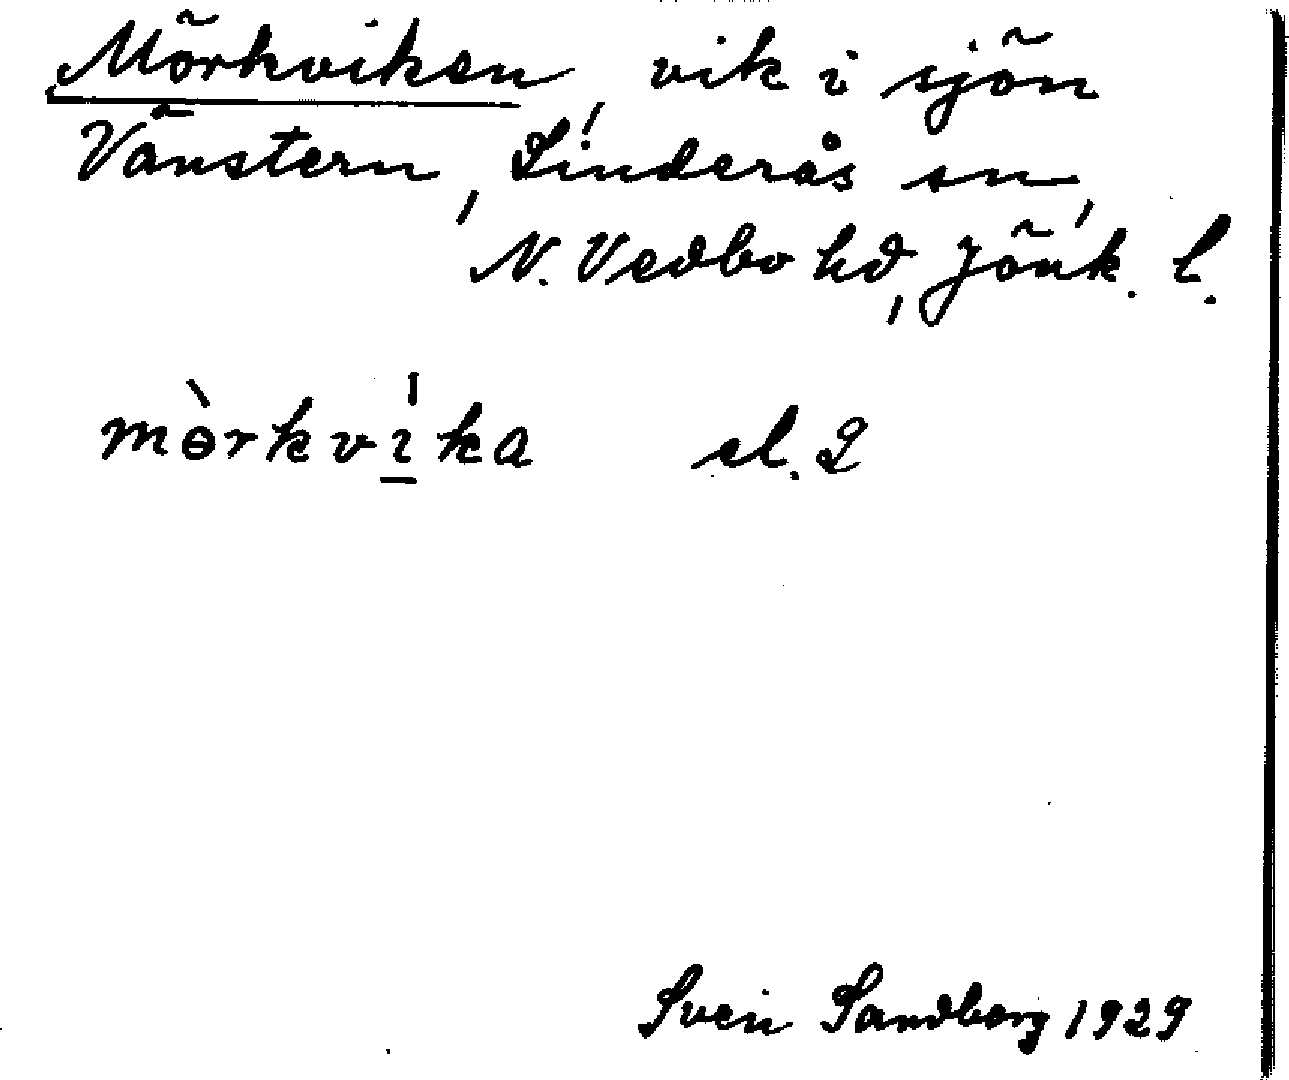 Mörkviken, vik i sjön
Vänstern, Linderås sn,
N. Vedbo hd, Jönk. l.
mɵ̀rkvi̠̍ka el. 2
Sven Sandberg 1929